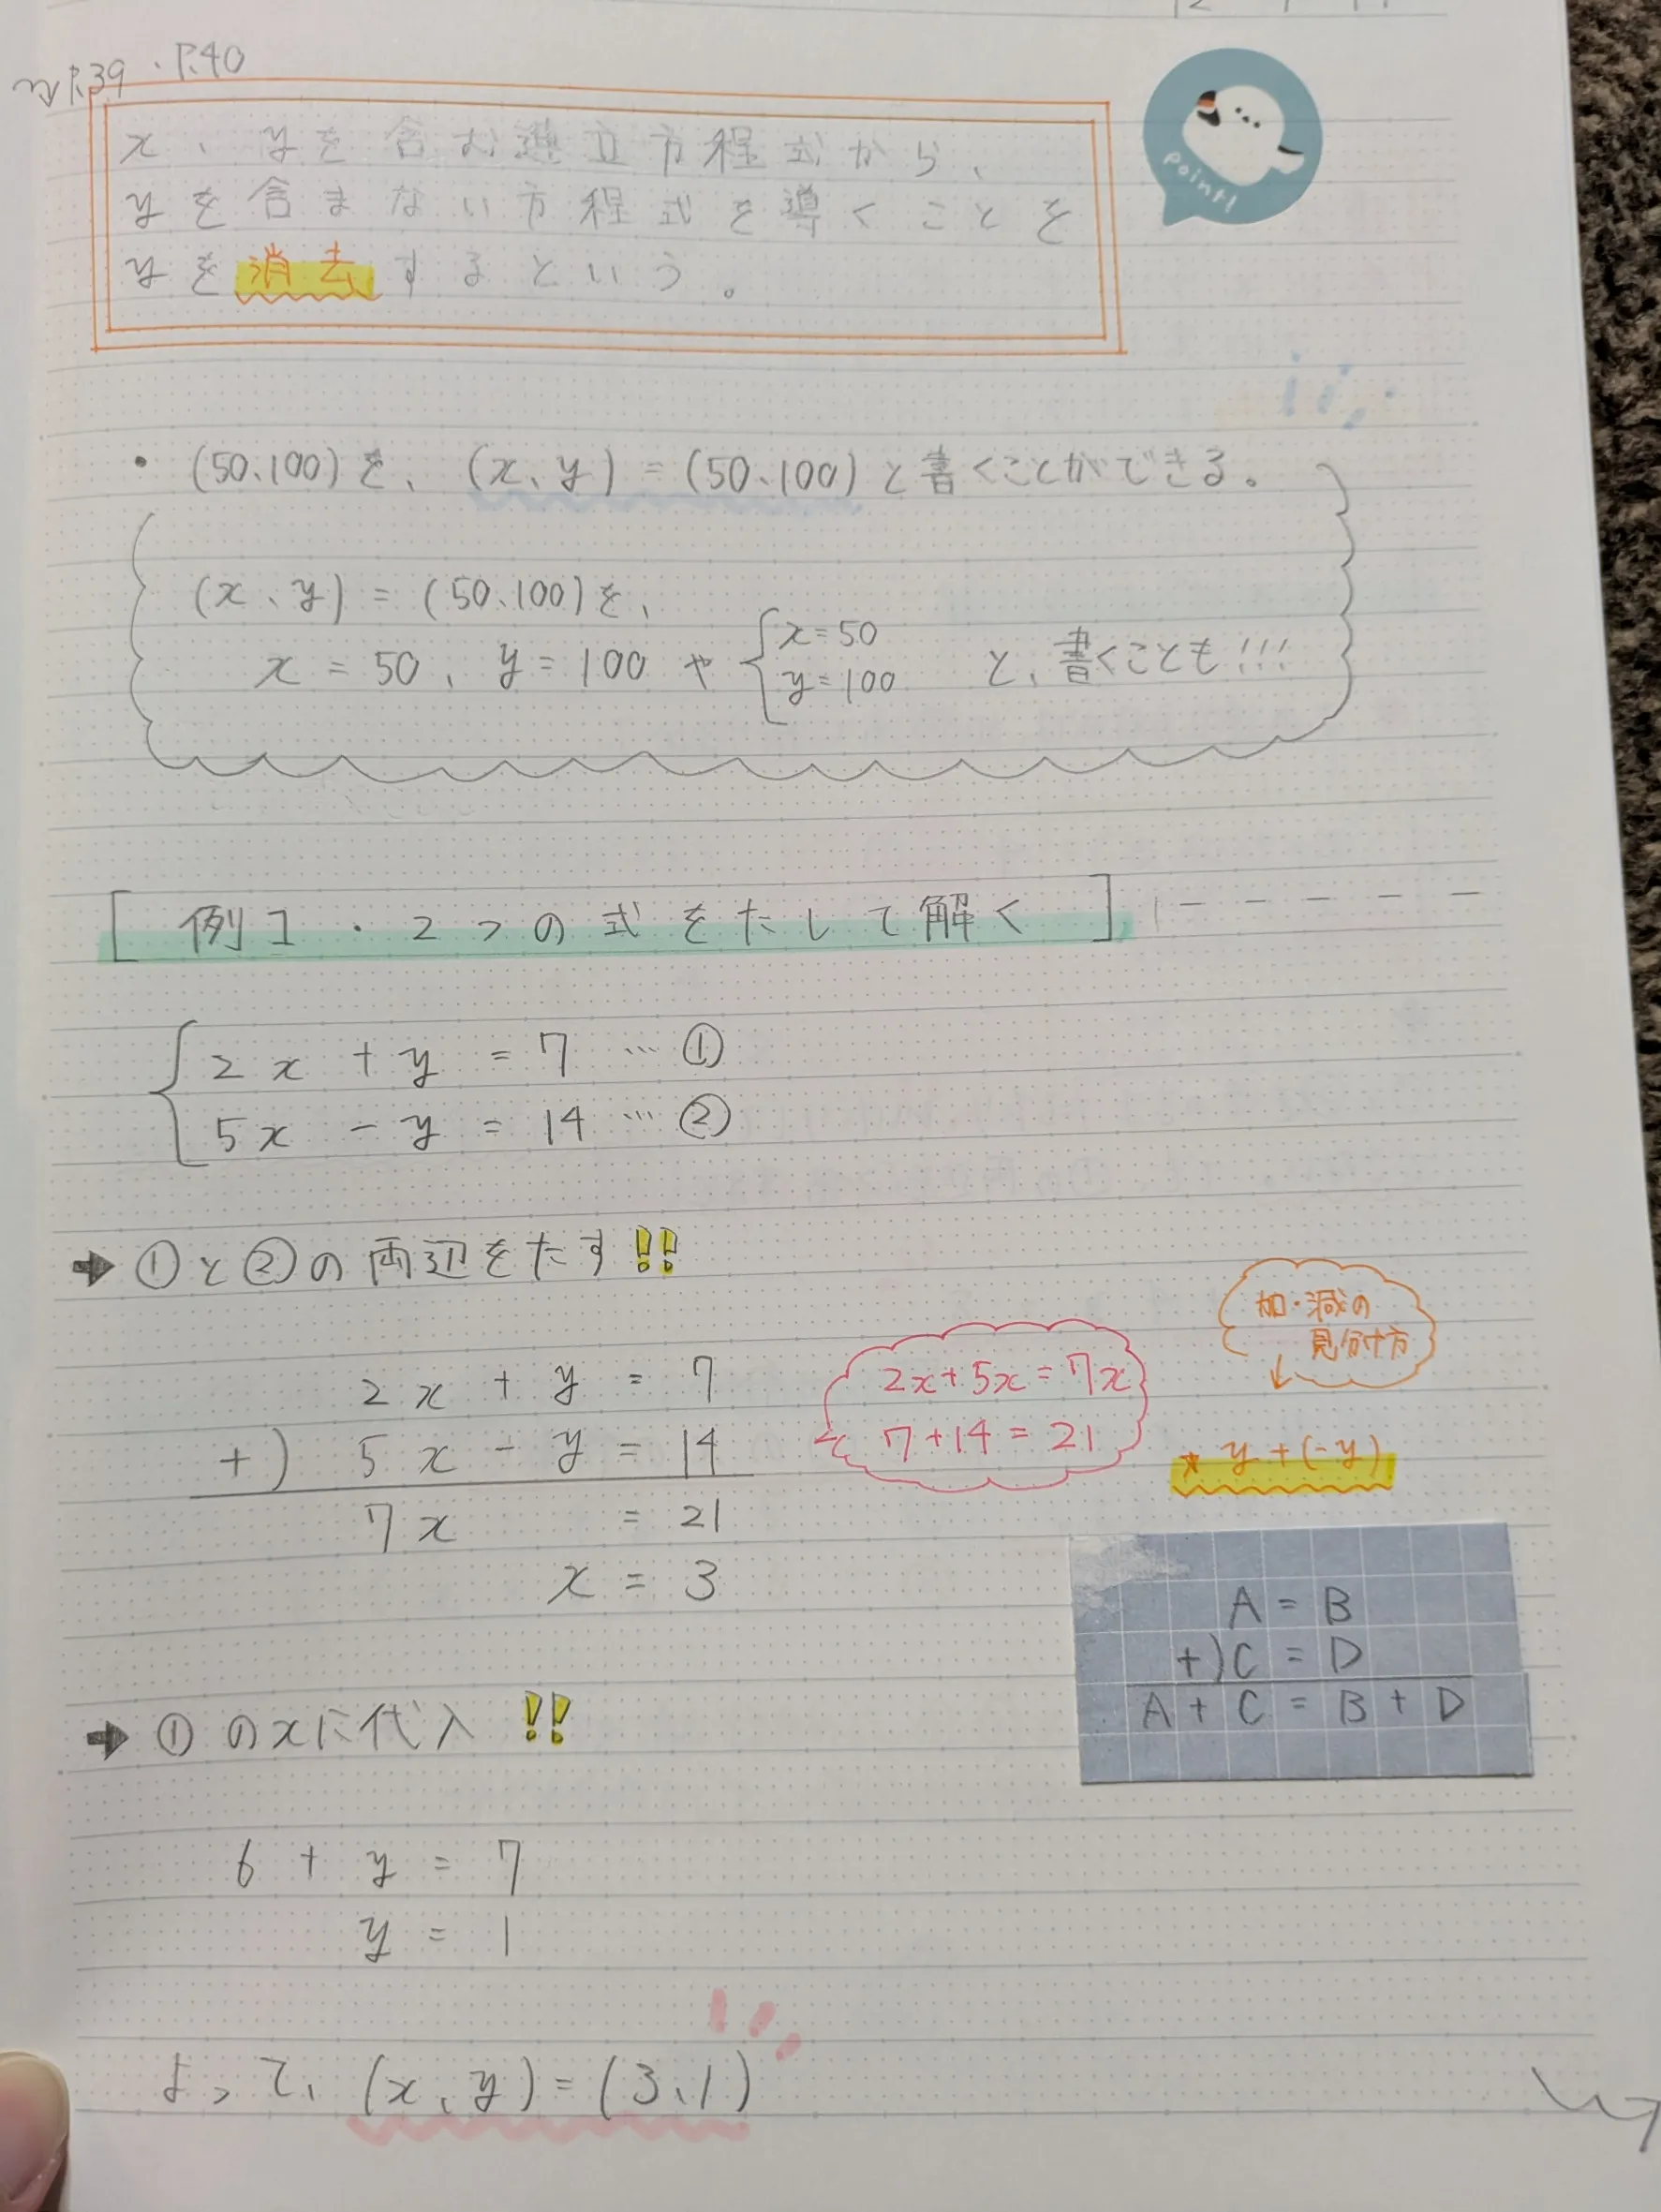 P.39・P.40
x、yを含む連立方程式から、
yを含まない方程式を導くことを
yを消去するという。
point!
・(50、100)を、(x、y)=(50、100)と書くことができる。
(x、y)=(50、100)を、
x=50、y=100や{x=50
y=100 と、書くことも!!!
[例1・2つの式をたして解く]
{2x+y=7…①
5x-y=14…②
➡①と②の両辺をたす!!
2x+y=7
+)5x-y=14
7x=21
x=3
2x+5x=7x
7+14=21
加・減の
見分け方
↓
*y+(-y)
A=B
+)C=D
A+C=B+D
➡①のxに代入!!
6+y=7
y=1
よって、(x、y)=(3、1)